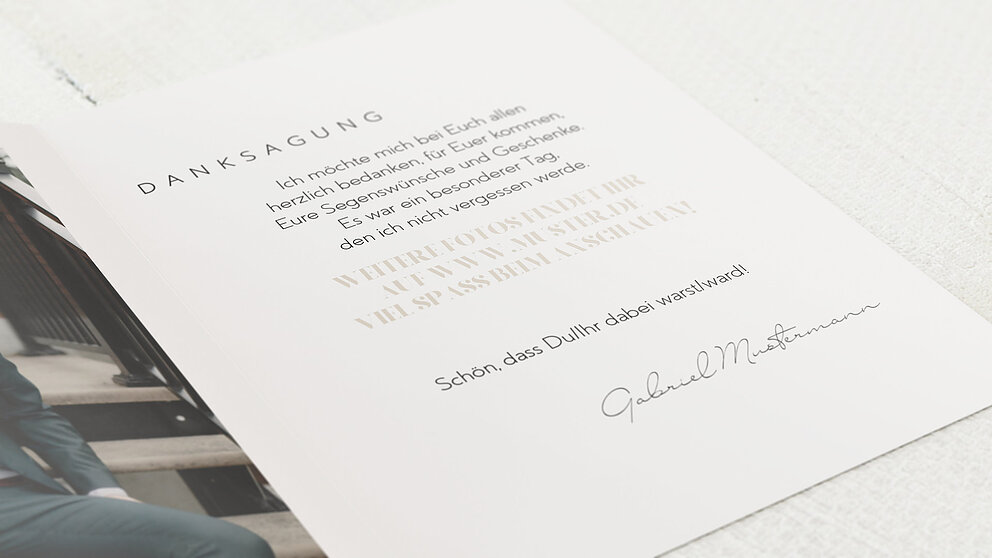 DANKSAGUNG
Ich möchte mich bei Euch allen
herzlich bedanken, für Euer kommen,
Eure Segenswünsche und Geschenke.
Es war ein besonderer Tag.
den ich nicht vergessen werde.
WEITERE FOTOS FINDET IHR
AUF WWW.MUSTER.DE
VIEL SPASS BEIM ANSCHAUEN!
Schön, dass DuIIhr dabei warstIward!
Gabriel Mustermann